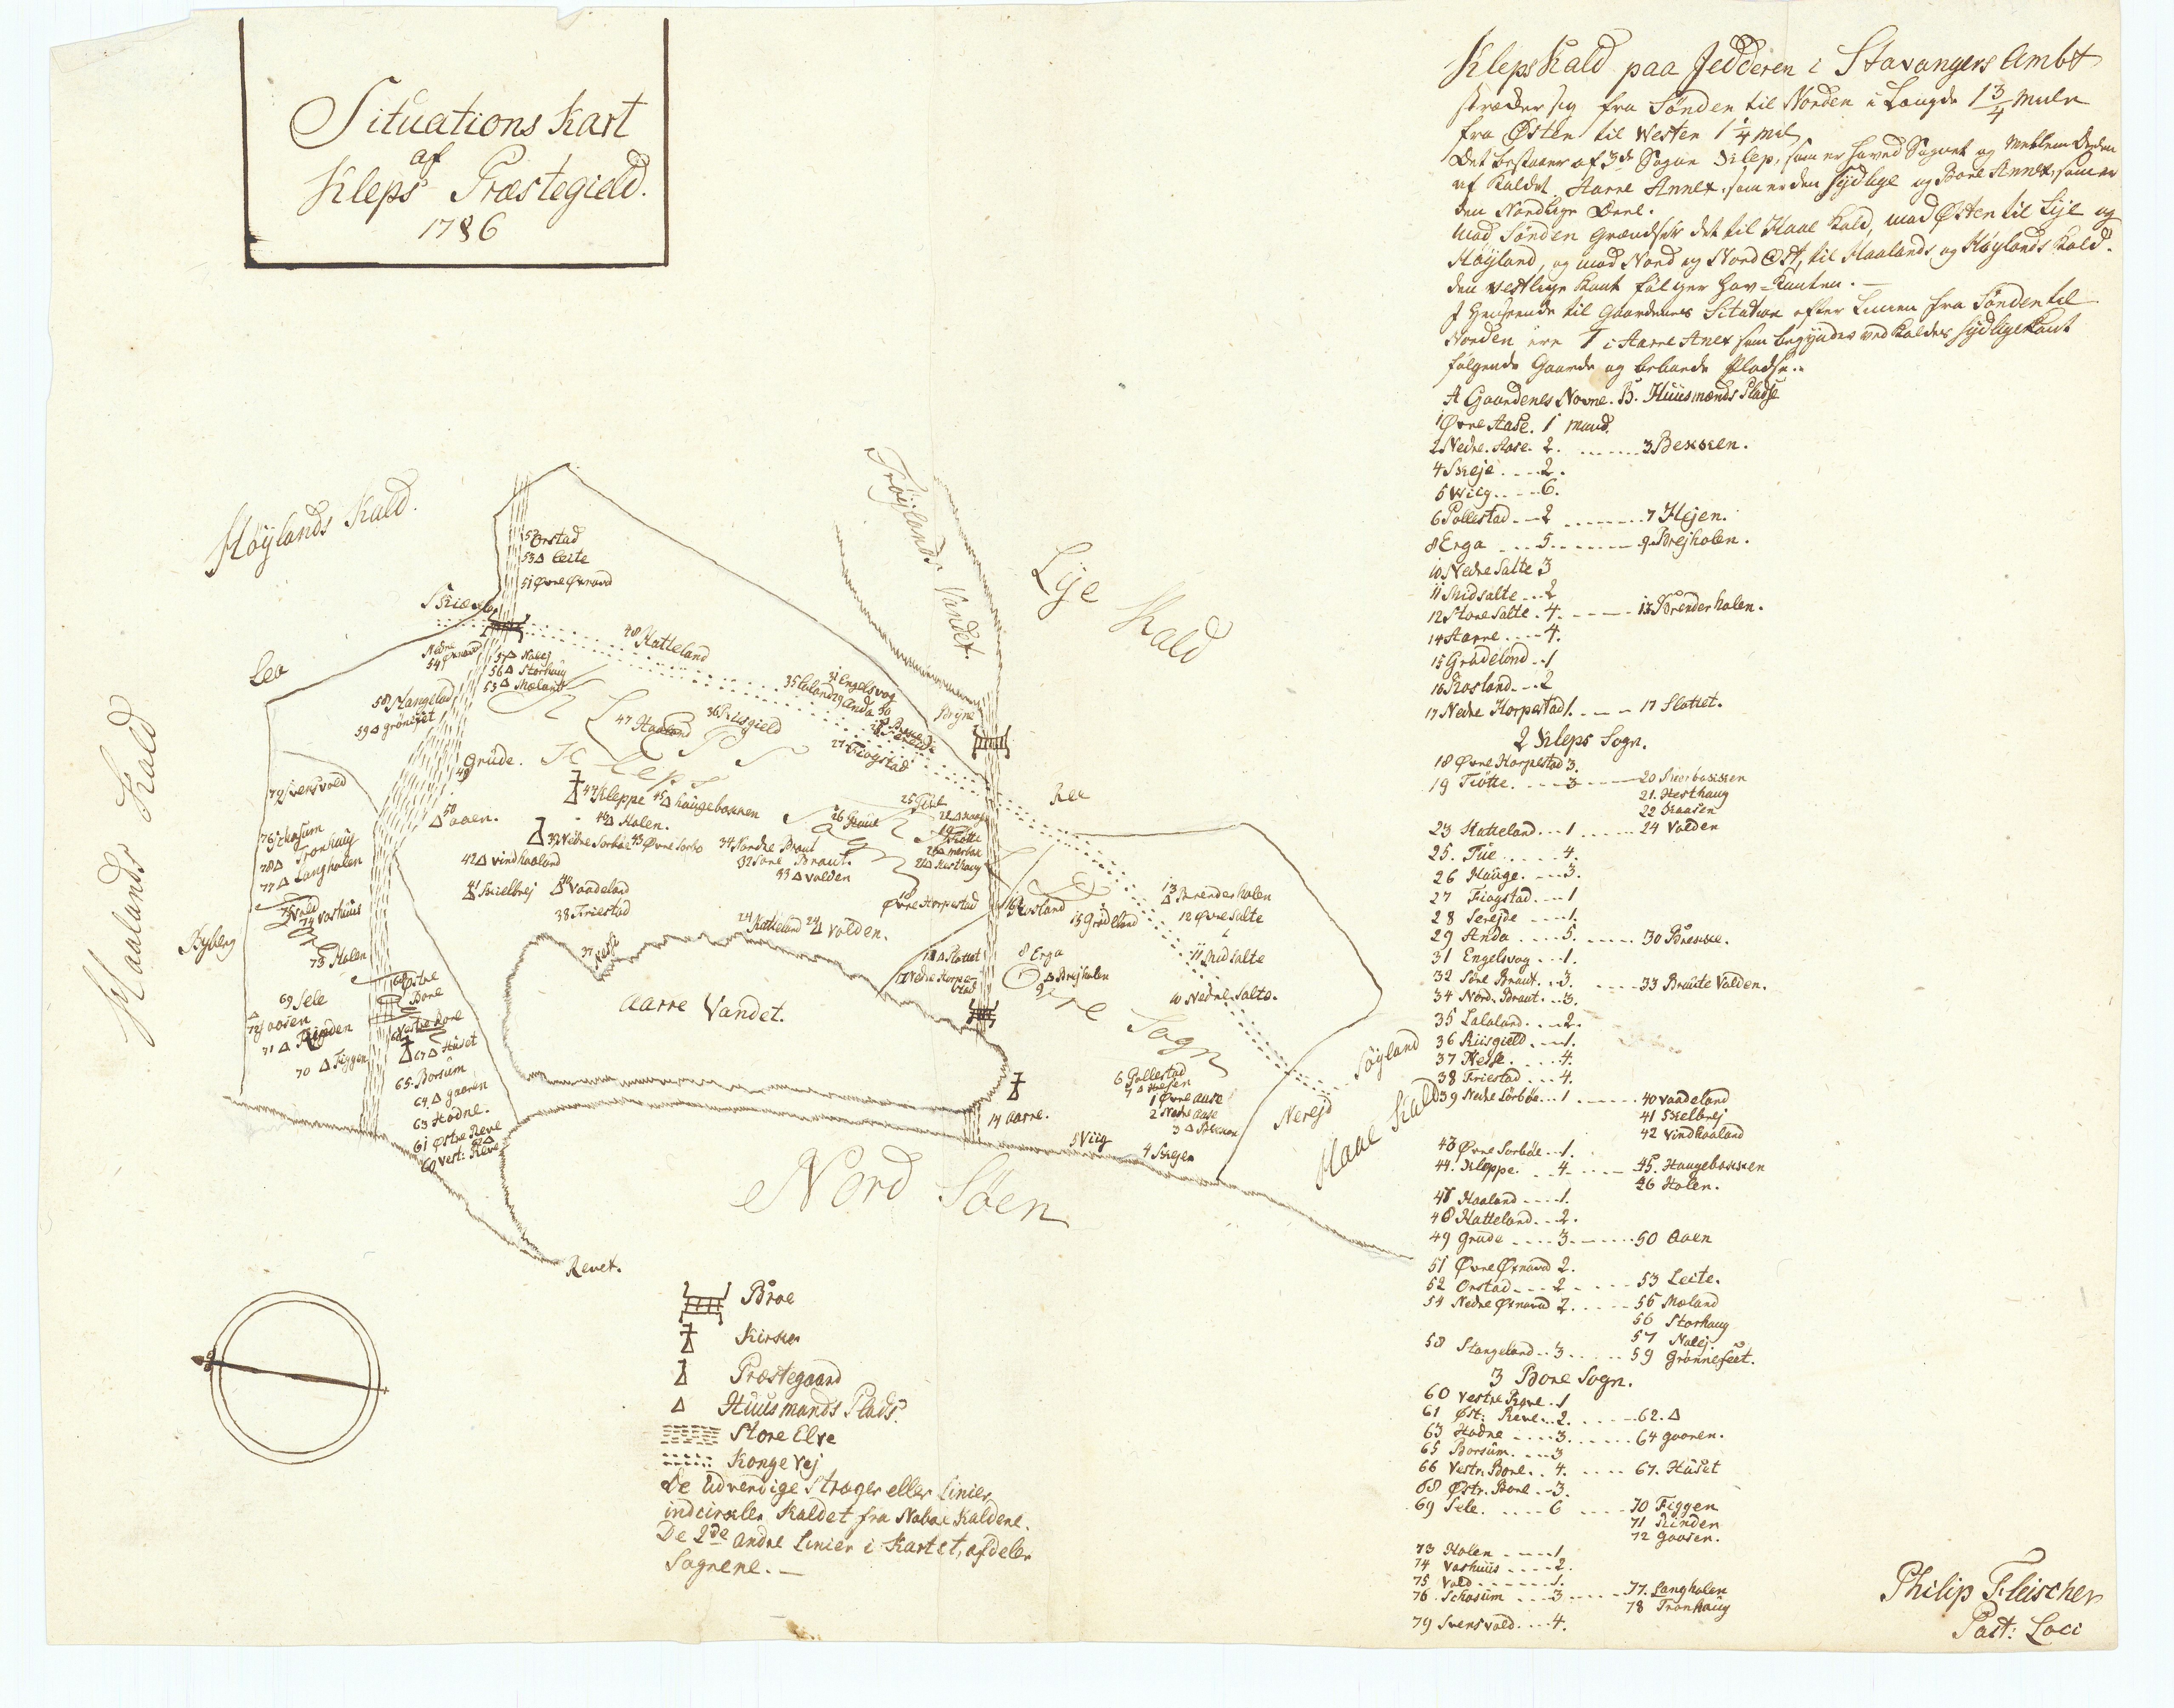 Situations Kart
af
Kleps Præstegield.
1786
Kleps Kald paa Jedderen i Stavangers Ambt
strækker sig fra Sønden til Norden i Længde 1 3/4 Miile
fra Østen til Westen 1 1/4 Mil.
Det bestaaer af 3de Sogne Klep, som er Hoved Sognet og Mellem Deelen
af Kaldet. Aarre Annex, som er den Sydlige og Bore Annex, som er
den Nordlige Deel.
Mod Sønden Grændser det til Haae Kald, mod Østen til Lije og
Høyland, og mod Nord og Nord Ost, til Haalands og Høylands Kald.
den vestlige Kant følger Hav-Kanten.
Henseende til Gaardenes Situation efter Linien fra Sønden til
Norden ere 1 i Aarre Anex som begynder ved Kaldets sydlige Kant
følgende Gaarde og beboede Pladse.
A Gaardenes Navne. B. Huusmænds Pladse
1 Øvre Aase. 1 Mand.
2 Nedre Aase. 2. 3 Bekken.
4 Skeje 2.
5 Wiig 6.
6 Pollestad 2 7 Hejen.
8 Erga 5 9 Brejholen.
10 Nedre Salte 3
11 Midsalte 2
12 Store Salte 4. 13 Brenderholen.
14 Aarre 4.
15 Grudelond 1
16 Rosland 2
17 Nedre Horpestad 1. 17 Slottet.
2 Kleps Sogn.
18 Øvre Horpestad 3.
19 Tiøtte. 3 20 Mærbakken
21. Hesthaug
22 Haasen
23 Hatteland 1 24 Volden
25. Tue 4.
26 Hauge 3.
27 Fiogstad 1
28 Serejde 1.
29 Anda 5. 30 Brekke.
31 Engelsvog 1.
32 Søre Braut 3. 33 Braute Volden.
34 Nord. Braut 3.
35 Lalaland 2.
36 Riisgield 1.
37 Nesse 4.
38 Friestad 4.
39 Nedre Sørbøe 1 40 Vaadeland
41 Skielbrej
42 Vindhaaland
43 Øvre Sørbøe 1.
44. Kleppe 4 45. Haugebakken
46 Holen.
47 Haaland 1.
48 Hatteland 2.
49 Grude 3 50 Aaen
51 Øvre Øxnavad 2.
52 Orstad 2 53 Leite.
54 Nedre Øxnavad 2. 55 Mæland
56 Storhaug
57 Nalej.
58 Stangeland 3 59 Grønnefeet.
3 Bore Sogn.
60 Vestre Reve 1
61 Øst: Reve 2. 62. Δ
63 Hodne 3. 64 gaaren.
65 Borsum 3
66 Vestr. Bore 4. 67. Huset
68 Østr. Bore 3.
69 Sele 6 70 Figgen
71 Rinden
72 Gaasen.
73 Holen 1
74 Vashuus 2.
75 Vold 1.
76 Schasum 3 77. Langholen
78 Tronhaug
79 Svensvold 4.
Philip Fleischer
Past: Loci
Høylands Kald.
Frøylands Vandet.
Lije Kald
Haalands Kald
52 Orstad
53 Δ Leite
51 Øvre Øxnavad
Leo
54 Nedre Øxnavad
57 Δ Nalej
56 Δ Storhaug
55 Δ Mæland
48 Hatteland
58 Stangeland
59 Δ grønefeet
Kleps Sogn
47 Haaland
36 Riisgield
31 Engelsvog
35 Lalaland
29 Anda 30
Bryne
27 Fiogstad
49 Grude.
50 Δ aaen.
44 Kleppe 45 Δ haugebakken
46 Δ Holen.
39 Nedre Sorbøe 43 Øvre Sorbø
42 Δ Vindhaaland
41 Skielbrej
40 Vaadeland
38 Friestad
34 Nordre Braut
32 Søre Braut.
33 Δ Volden
26 Hauge
25 Tue
19 Tiøtte
21 Δ Hesthaug
18 Øvre Horpestad
24 Hatteland 24 Δ Volden.
37 Nesse
Aarre Vandet.
79 Svensvold
76 Schasum
78 Δ Tronhaug
77 Δ Langholen
75 Vold
74 Vashuus
Byberg
73 Holen
69 Sele
72 gaasen
71 Δ Rinden
70 Δ Figgen
68 Østre Bore
66 Vestre Bore
67 Δ Huset
65. Borsum
64 Δ gaaren
63 Hodne.
61 Østre Reve
62 Δ
60 Vest: Reve
Ree
16 Rosland
15 Grudeland
13 Δ Brenderholen
12 Øvre Salte
11 Midsalte
10 Nedre Salte.
8 Erga
9 Δ Brejholen
17 Δ Slottet
17 Nedre Horpestad
Orre Sogn
6 Pollestad
7 Δ Hejen
1 Øvre aase
2 Nedre aase
3 Δ Bekken
14 Aarre.
5 Viig
4 Skejen
Nerejd
Søyland
Haae Kald
Nord Søen
Revet.
Broe
Kirke
Præstegaard
Huusmands Plads.
Store Elve
Konge Vej
De Udvendige Stræger eller Linier
indcirkler Kaldet fra Naboe Kaldene.
De 2de andre Linier i Kartet, afdeler
Sognene.